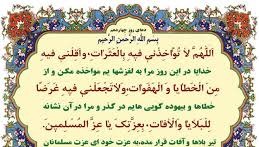 دعای روز چهاردهم
بِسْمِ اللَّهِ الرَّحْمنِ الرَّحِيمِ
اَللّهُمَّ لا تُؤاخِذْنى فيهِ بِالْعَثَراتِ، وَاَقِلْنى فيهِ
خدایا در این روز مرا به لغزشها یم مواخذه مکن و از
مِنَ الْخَطايا وَ الْهَفَواتِ، وَلا تَجْعَلْنى فيهِ غَرَضًا
خطاها و بیهوده گویی هایم در گذر و مرا در آن نشانه
لِلْبَلايا وَالْآفاتِ، بِعِزَّتِكَ يا عِزَّ الْمُسْلِمينَ
تیر بلاها و آفات قرار مده، به عزت خود ای عزت مسلمانان